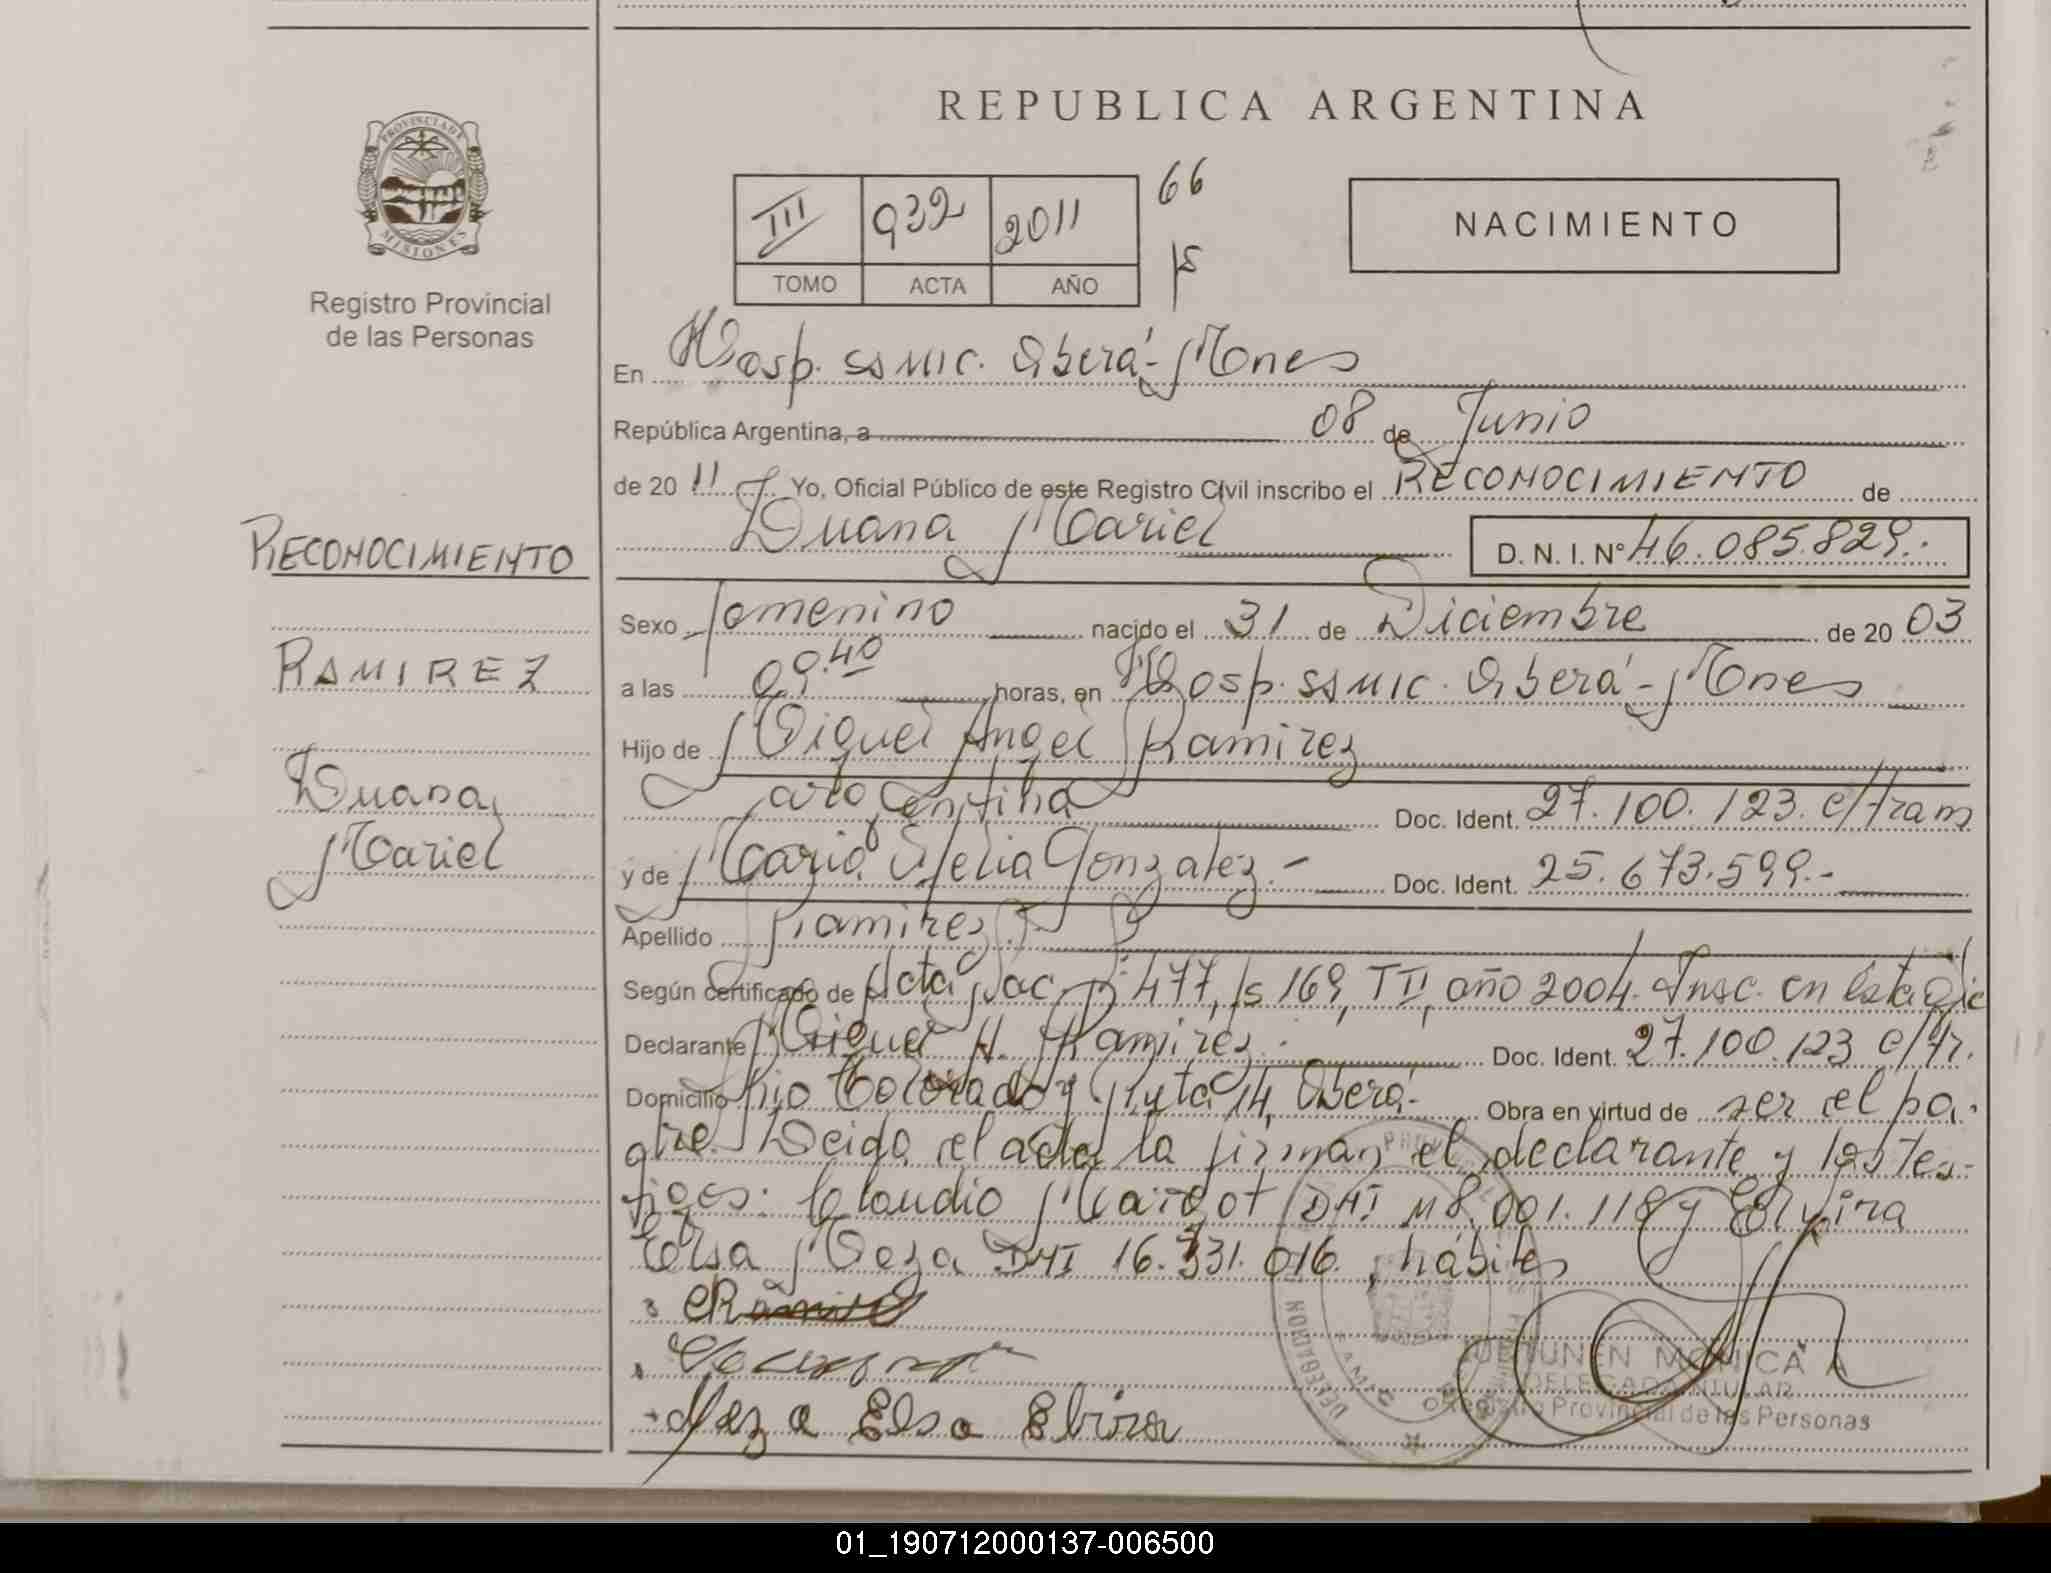 REPUBLICA ARGENTINA
PROVINCIA DE
MISIONES
Registro Provincial
de las Personas
III 932 2011 66
TOMO ACTA AÑO
NACIMIENTO
En Hosp. SAMIC. Oberá - Mnes
República Argentina, a 08 de Junio
de 20 11 Yo, Oficial Público de este Registro Civil inscribo el RECONOCIMIENTO de
Duana Mariel D. N. I. Nº 46.085.829.-
RECONOCIMIENTO
RAMIREZ
Duana
Mariel
Sexo Femenino nacido el 31 de Diciembre de 20 03
a las 09.40 horas, en Hosp. SAMIC. Oberá - Mnes
Hijo de Miguel Angel Ramirez
argentina Doc. Ident. 27.100.123. c/tram
y de Maria Ofelia Gonzalez.- Doc. Ident. 25.673.599.-
Apellido Ramirez
Según certificado de Acta Nac. Nº 477, fs 169, T II, año 2004. Insc. en esta Ofic
Declarante Miguel A. Ramirez.- Doc. Ident. 27.100.123 c/tr.
Domicilio Rio Colorado y Ruta 14, Oberá- Obra en virtud de ser el pa-
dre. Leida el acta la firman el declarante y los tes-
tigos: Claudio Margot DNI M8.001.118 y Elvira
Elsa Meza DNI 16.331.016, hábiles
Meza Elsa Elvira
DELEGACION
MONICA A
DELEGADA TITULAR
Registro Provincial de las Personas
01_190712000137-006500